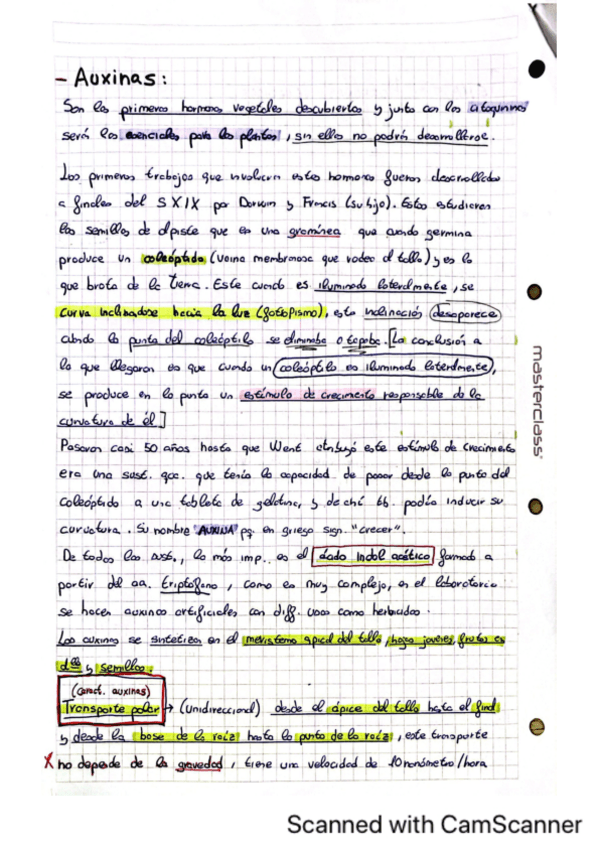 - Auxinas:
Son las primeras hormonas vegetales descubiertas y junto con las citoquinas
será las esenciales para las plantas, sin ellas no podrán desarrollarse.
Los primeros trabajos que involucran estas hormonas fueron desarrollados
a finales del S XIX por Darwin y Francis (su hijo). Estos estudiaron
las semillas de alpiste que es una gramínea que cuando germina
produce un coleóptido (vaina membranosa que rodea al tallo) y es lo
que brota de la tierra. Este cuando es iluminado lateralmente, se
curva inclinándose hacia la luz (fototropismo), esta inclinación desaparece
cuando la punta del coleóptilo se eliminaba o tapaba. [La conclusión a
la que llegaron es que cuando un coleóptilo es iluminado lateralmente,
se produce en la punta un estímulo de crecimiento responsable de la
curvatura de él]
Pasaron casi 50 años hasta que Went atribuyó este estímulo de crecimiento
era una sust. qca. que tenía la capacidad de pasar desde la punta del
coleóptido a una tableta de gelatina, y de ahí tb. podía inducir su
curvatura. Su nombre "AUXINA" pq. en griego sign. "crecer".
De todas las sust., la más imp. es el ácido indol acético, formado a
partir del aa. triptófano, como es muy complejo, en el laboratorio
se hacen auxinas artificiales con diff. usos como herbicidas.
Las auxinas se sintetiza en el meristemo apical del tallo, hojas jóvenes, frutos en
d⁰⁰ y semillas.
(caract. auxinas)
Transporte polar → (Unidireccional) desde el ápice del tallo hasta el final
y desde la base de la raíz hasta la punta de la raíz, este transporte
X no depende de la gravedad, tiene una velocidad de 10 nanómetro/hora
masterclass
Scanned with CamScanner